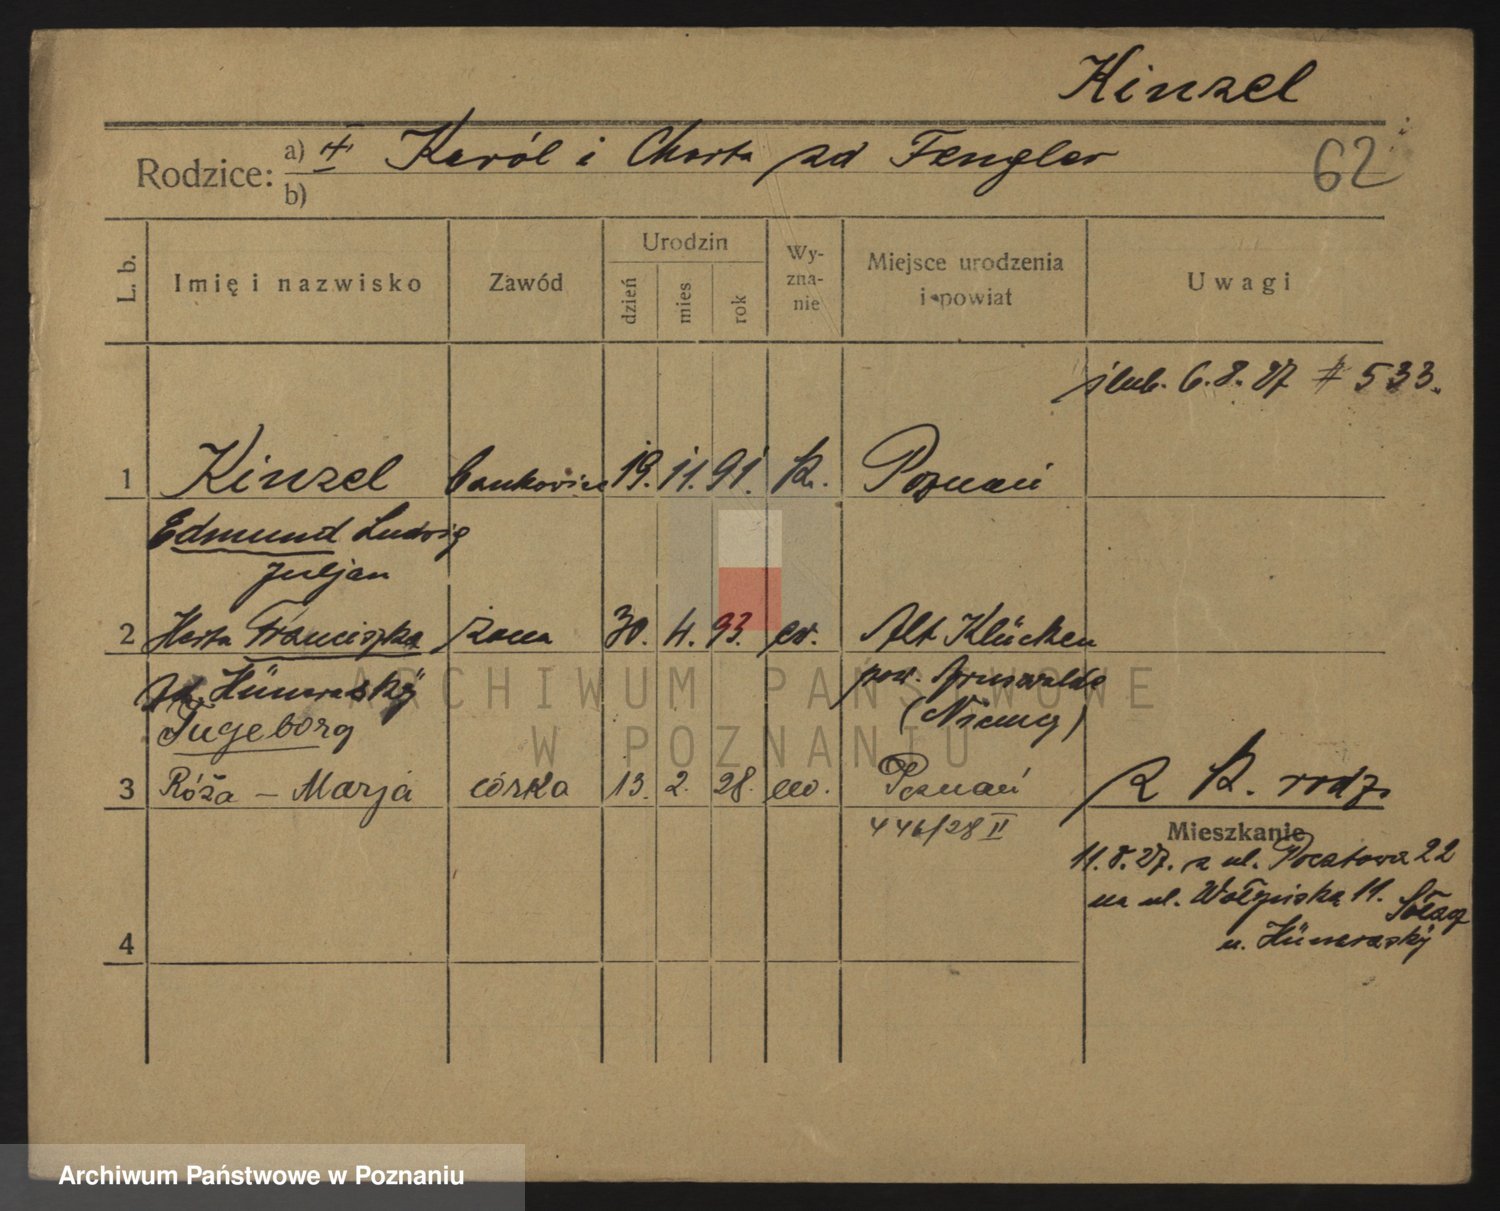 Kinzel
Rodzice: a) Karól i Charta zd Fengler
b)
62
L. b. Imię i nazwisko Zawód Urodzin dzień mies rok Wyznanie Miejsce urodzenia i powiat Uwagi
ślub. 6.8.27 # 533.
1 Kinzel bankowiec 19. 11. 91. K. Poznań
Edmund Ludwig
Juljan
2 Herta Franciszka żona 30. 4. 93. ew. Alt Klücken
zd. Hünerasky pow. Arnswalde
(Niemcy)
Ingeborg
3 Róża - Marja córka 13. 2. 28. ew. Poznań z K. rodz.
446/28 II
Mieszkanie
11.8.27. z ul. Pocztowa 22
na ul. Wołyńska 11. Sołacz
u. Hünerasky
4
ARCHIWUM PAŃSTWOWE
W POZNANIU
Archiwum Państwowe w Poznaniu